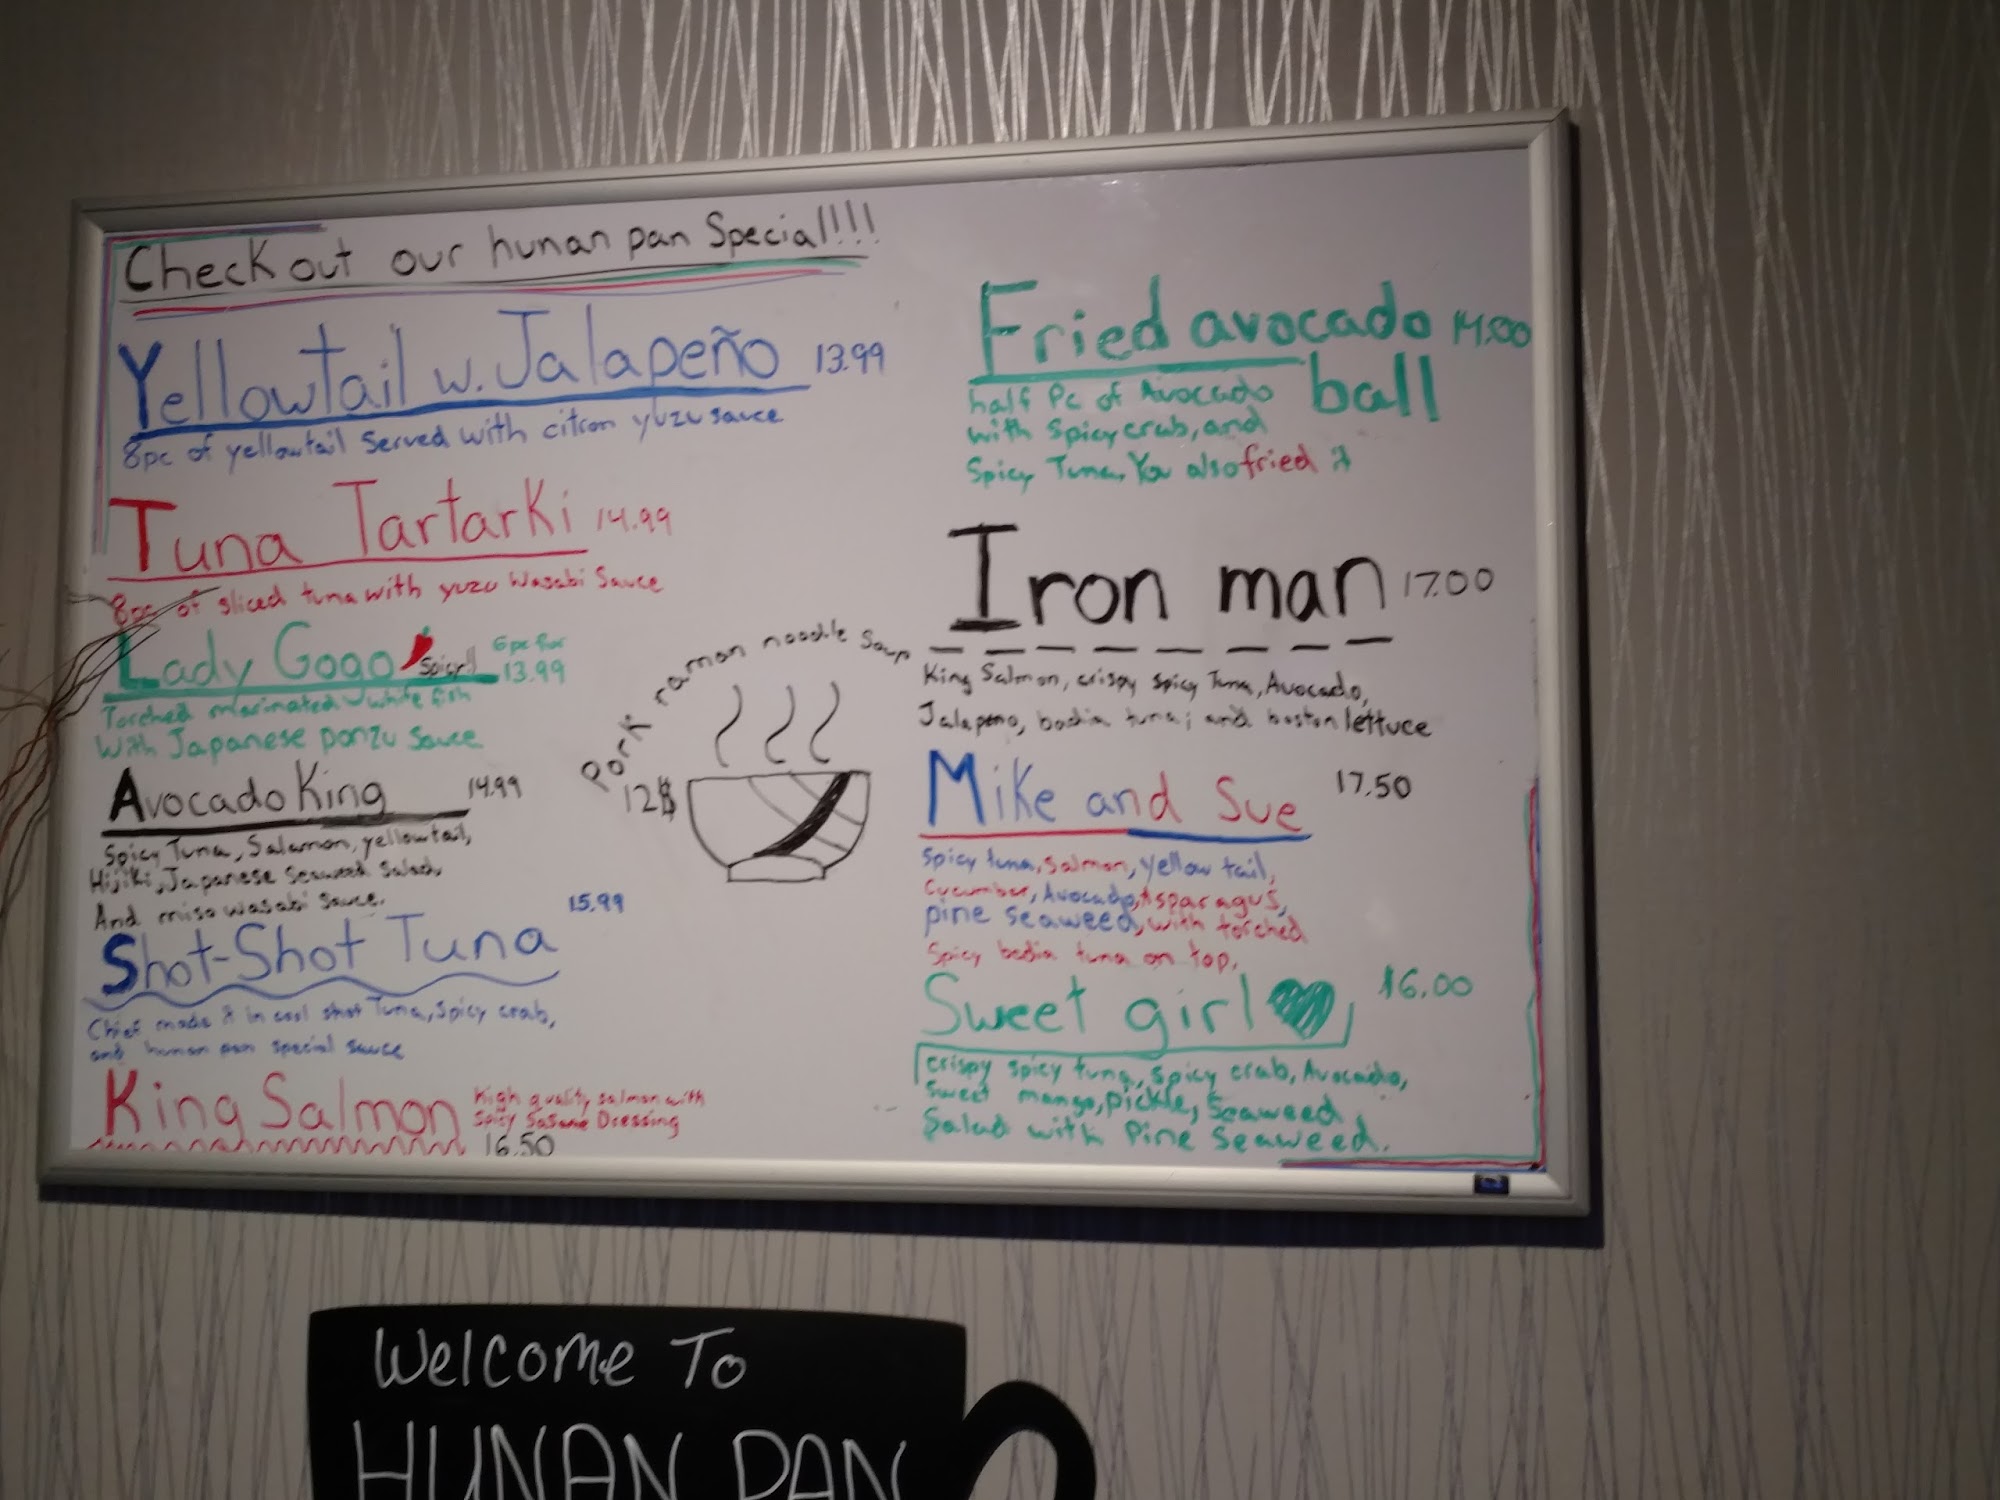 Check out our hunan pan Special!!!
Yellowtail w. Jalapeño 13.99
8pc of yellowtail Served with citron yuzu sauce
Tuna Tartarki 14.99
8pc of sliced tuna with yuzu Wasabi Sauce
Lady Gogo Spicy!! 6pc for 13.99
Torched marinated white fish
With Japanese ponzu Sauce
Avocado King 14.99
Spicy Tuna, Salamon, yellowtail,
Hijiki, Japanese Seaweed Salad,
And miso wasabi sauce.
Shot-Shot Tuna 15.99
Chief made it in cool shot Tuna, Spicy crab,
and hunan pan special sauce
King Salmon
High quality salmon with
Spicy Sasame Dressing
16.50
Pork raman noodle Soup
12$
Fried avocado 14.00
ball
half Pc of Avocado
with Spicy crab, and
Spicy Tuna, You also fried it
Iron man 17.00
King Salmon, crispy spicy Tuna, Avocado,
Jalapeno, badia tuna; and boston lettuce
Mike and Sue 17.50
Spicy tuna, Salmon, Yellow tail,
Cucumber, Avocado, Asparagus,
pine seaweed, with torched
Spicy badia tuna on top.
Sweet girl 16.00
crispy spicy tuna, spicy crab, Avocado,
Sweet mango, pickle, Seaweed
Salad with Pine Seaweed.
Welcome To
HUNAN PAN